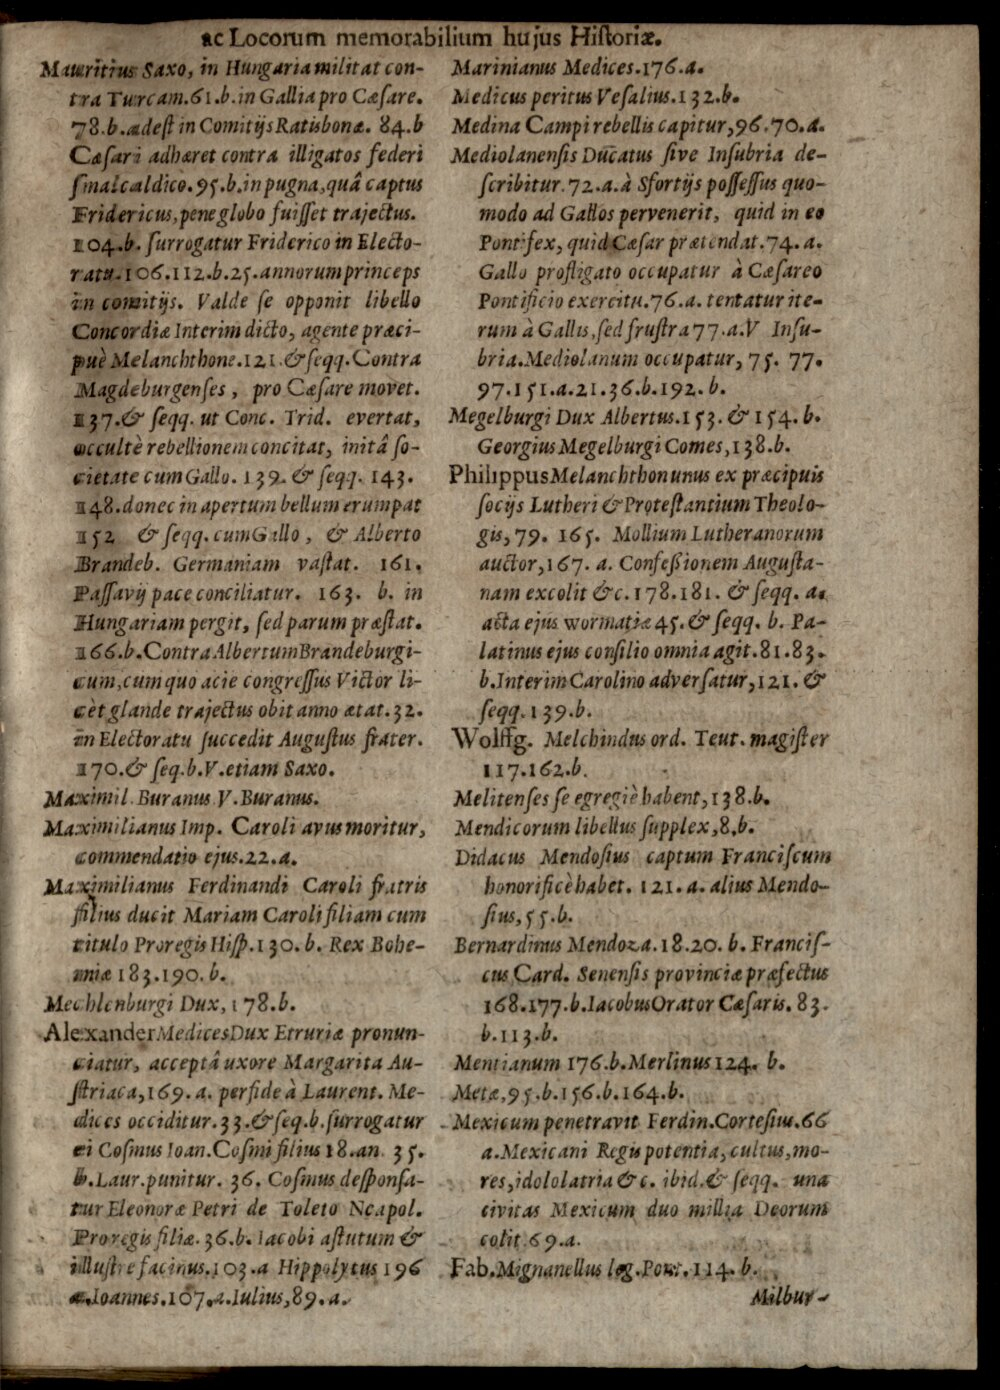 ac Locorum memorabilium hujus Historiæ.
Mauritius Saxo, in Hungaria militat con-
tra Turcam.61.b.in Gallia pro Cæsare.
78.b.adest in Comitijs Ratisbonæ. 84.b
Cæsari adhæret contra illigatos federi
smalcaldico.95.b.in pugna,quâ captus
Fridericus,pene globo fuisset trajectus.
104.b. surrogatur Friderico in Electo-
ratu.106.112.b.25.annorum princeps
in comitijs. Valde se opponit libello
Concordiæ Interim dicto, agente præci-
puè Melanchthone.121.&seqq.Contra
Magdeburgenses, pro Cæsare movet.
137.& seqq. ut Conc. Trid. evertat,
occultè rebellionem concitat, initâ so-
cietate cum Gallo. 139. & seqq. 143.
148.donec in apertum bellum erumpat
152 & seqq. cum Gallo, & Alberto
Brandeb. Germaniam vastat. 161.
Passavij pace conciliatur. 163. b. in
Hungariam pergit, sed parum præstat.
166.b.Contra Albertum Brandeburgi-
cum,cum quo acie congressus Victor li-
cèt glande trajectus obit anno ætat.32.
in Electoratu succedit Augustus frater.
170.& seq.b.V.etiam Saxo.
Maximil. Buranus V. Buranus.
Maximilianus Imp. Caroli avus moritur,
commendatio ejus.22.a.
Maximilianus Ferdinandi Caroli fratris
filius ducit Mariam Caroli filiam cum
titulo Proregis Hisp.130.b. Rex Bohe-
miæ 183.190.b.
Mechlenburgi Dux, 178.b.
Alexander Medices Dux Etruriæ pronun-
ciatur, acceptâ uxore Margarita Au-
striaca,169.a. perfide à Laurent. Me-
dices occiditur.33.&seq.b.surrogatur
ei Cosmus Ioan.Cosmi filius 18.an. 35.
b.Laur.punitur. 36. Cosmus desponsa-
tur Eleonoræ Petri de Toleto Neapol.
Proregis filiæ.36.b. Iacobi astutum &
illustre facinus.103.a Hippolytus 196
a.Ioannes.107.a.Iulius,89.a.
Marinianus Medices.176.a.
Medicus peritus Vesalius.132.b.
Medina Campi rebellis capitur,96.70.a.
Mediolanensis Ducatus sive Insubria de-
scribitur.72.a.à Sfortijs possessus quo-
modo ad Gallos pervenerit, quid in eo
Pontifex, quid Cæsar prætendat.74.a.
Gallo profligato occupatur à Cæsareo
Pontificio exercitu.76.a. tentatur ite-
rum à Gallis,sed frustra 77.a.V Insu-
bria.Mediolanum occupatur, 75. 77.
97.151.a.21.36.b.192.b.
Megelburgi Dux Albertus.153. & 154.b.
Georgius Megelburgi Comes,138.b.
Philippus Melanchthon unus ex præcipuis
socijs Lutheri & Protestantium Theolo-
gis,79. 165. Mollium Lutheranorum
auctor,167.a. Confessionem Augusta-
nam excolit &c.178.181. & seqq. a.
acta ejus wormatiæ 45.& seqq. b. Pa-
latinus ejus consilio omnia agit.81.83.
b.Interim Carolino adversatur,121. &
seqq.139.b.
Wolffg. Melchindus ord. Teut. magister
117.162.b.
Melitenses se egregiè habent,138.b.
Mendicorum libellus supplex,8.b.
Didacus Mendosius captum Franciscum
honorificè habet. 121.a. alius Mendo-
sius,55.b.
Bernardinus Mendoza.18.20. b. Francis-
cus Card. Senensis provinciæ præfectus
168.177.b.Iacobus Orator Cæsaris. 83.
b.113.b.
Mentianum 176.b.Merlinus 124. b.
Metæ,95.b.156.b.164.b.
Mexicum penetravit Ferdin.Cortesius.66
a.Mexicani Regis potentia,cultus,mo-
res,idololatria &c. ibid.& seqq. una
civitas Mexicum duo millia Deorum
colit.69.a.
Fab.Mignanellus leg.Pont.114.b.
Milbur-